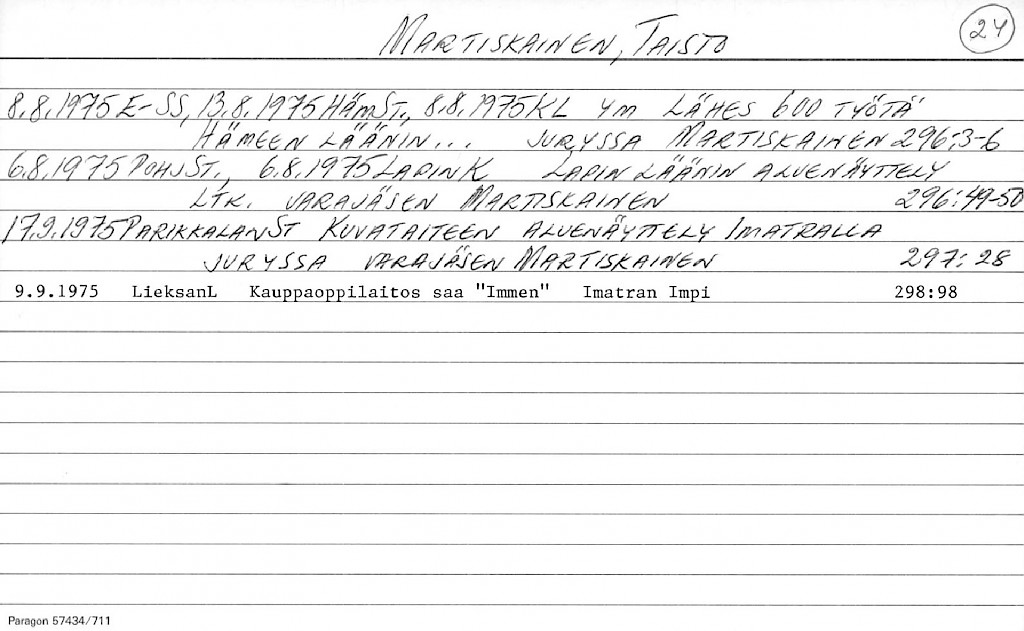 MARTISKAINEN, TAISTO 24
8.8.1975 E-SS, 13.8.1975 HÄMST., 8.8.1975 KL YM LÄHES 600 TYÖTÄ
HÄMEEN LÄÄNIN... JURYSSA MARTISKAINEN 296:3-6
6.8.1975 POHJST., 6.8.1975 LAPINK LAPIN LÄÄNIN ALUENÄYTTELY
LTK. VARAJÄSEN MARTISKAINEN 296:49-50
17.9.1975 PARIKKALANST KUVATAITEEN ALUENÄYTTELY IMATRALLA
JURYSSA VARAJÄSEN MARTISKAINEN 297:28
9.9.1975 LieksanL Kauppaoppilaitos saa "Immen" Imatran Impi 298:98
Paragon 57434/711